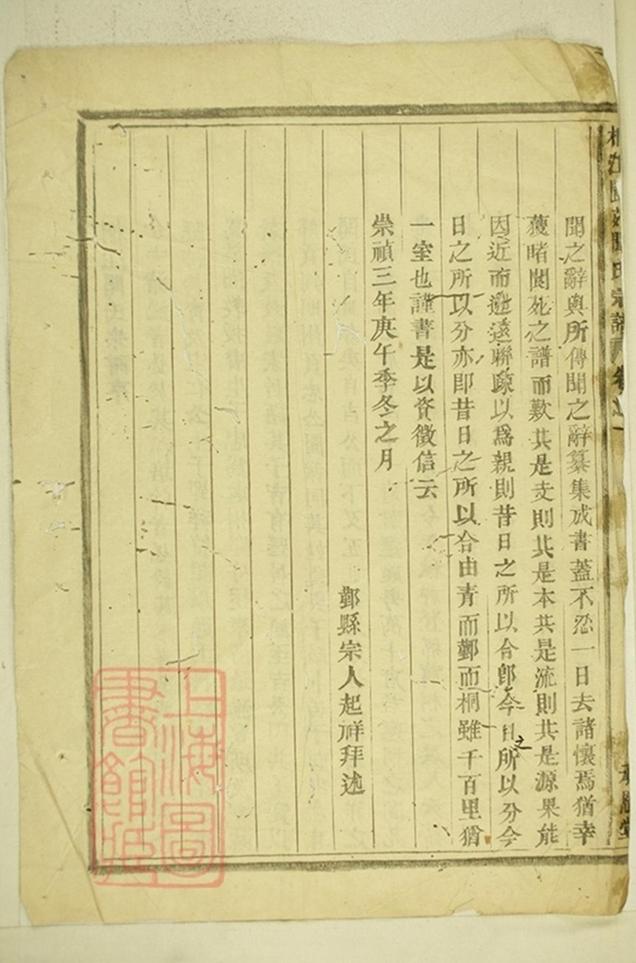 聞之辭與所傳聞之辭纂集成書蓋不忍一日去諸懷焉猶幸
獲睹閔死之譜而歎其是支則其是本其是流則其是源果能
因近而遡遠聯踈以爲親則昔日之所以合即今日之所以分今
日之所以分亦即昔日之所以合由青而鄞而桐雖千百里猶
一室也謹書是以資徵信云
崇禎三年庚午季冬之月
鄞縣宗人起祥拜述
上海圖
書館藏